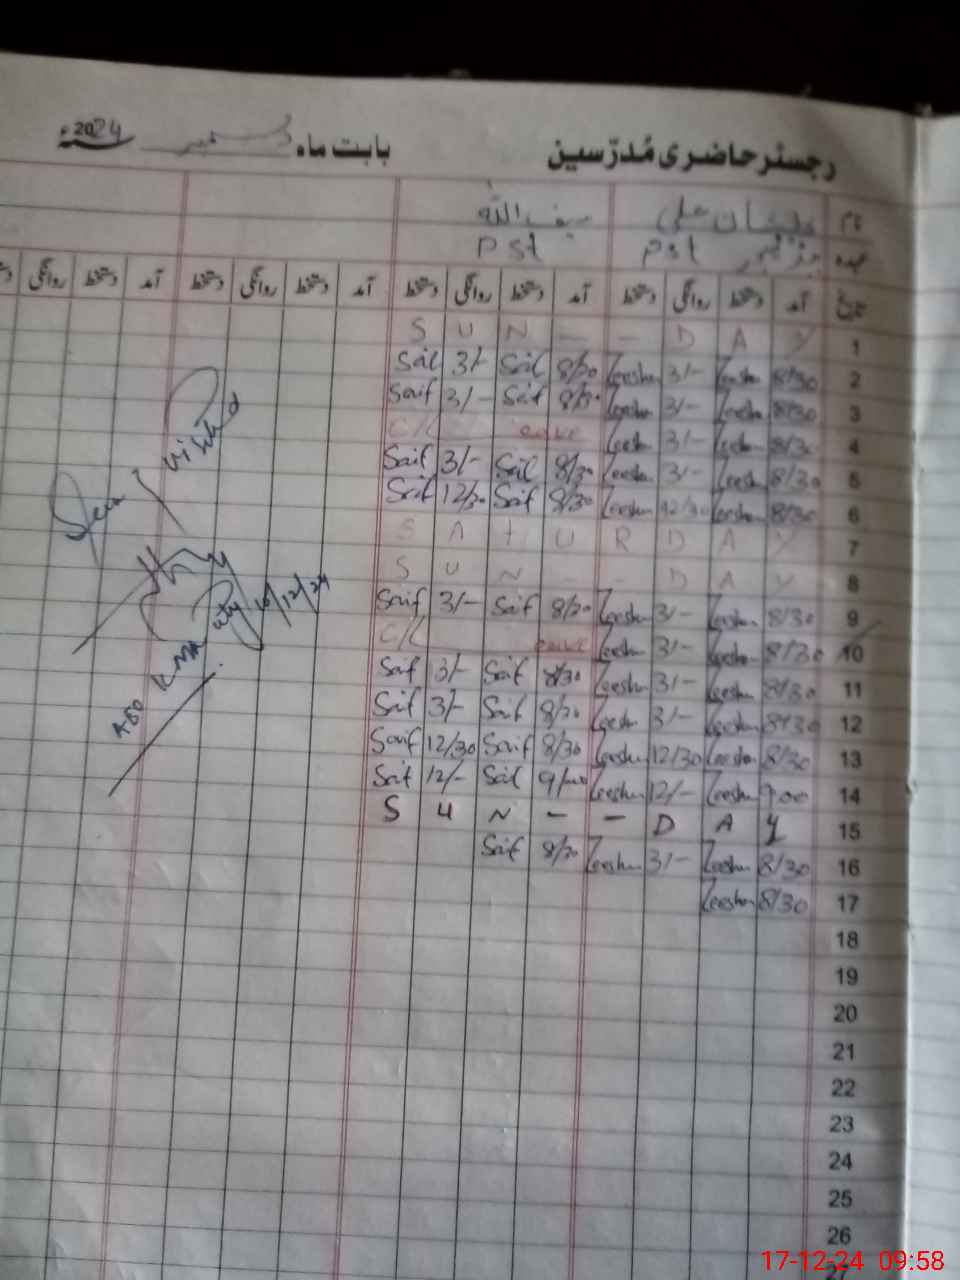 رجسٹر حاضری مُدرّسین بابت ماہ دسمبر 2024ء
نام ذیشان علی سیف اللہ
عہدہ PST PST
تاریخ آمد دستخط روانگی دستخط آمد دستخط روانگی دستخط آمد دستخط روانگی دستخط آمد دستخط روانگی
1 S U N - - D A Y
2 8/30 Zeeshan 3/- Zeeshan 8/30 Saif 3/- Saif
3 8/30 Zeeshan 3/- Zeeshan 8/30 Saif 3/- Saif
4 8/30 Zeeshan 3/- Zeeshan C/Leave
5 8/30 Zeeshan 3/- Zeeshan 8/30 Saif 3/- Saif
6 8/30 Zeeshan 12/30 Zeeshan 8/30 Saif 12/30 Saif
7 S A T U R D A Y
8 S U N - - D A Y
9 8/30 Zeeshan 3/- Zeeshan 8/30 Saif 3/- Saif
10 8/30 Zeeshan 3/- Zeeshan C/Leave
11 8/30 Zeeshan 3/- Zeeshan 8/30 Saif 3/- Saif
12 8/30 Zeeshan 3/- Zeeshan 8/30 Saif 3/- Saif
13 8/30 Zeeshan 12/30 Zeeshan 8/30 Saif 12/30 Saif
14 9.00 Zeeshan 12/- Zeeshan 9/00 Saif 12/- Saif
15 S U N - - D A Y
16 8/30 Zeeshan 3/- Zeeshan 8/30 Saif
17 8/30 Zeeshan
18
19
20
21
22
23
24
25
26
27
Seen & visited
10/12/24
17-12-24 09:58